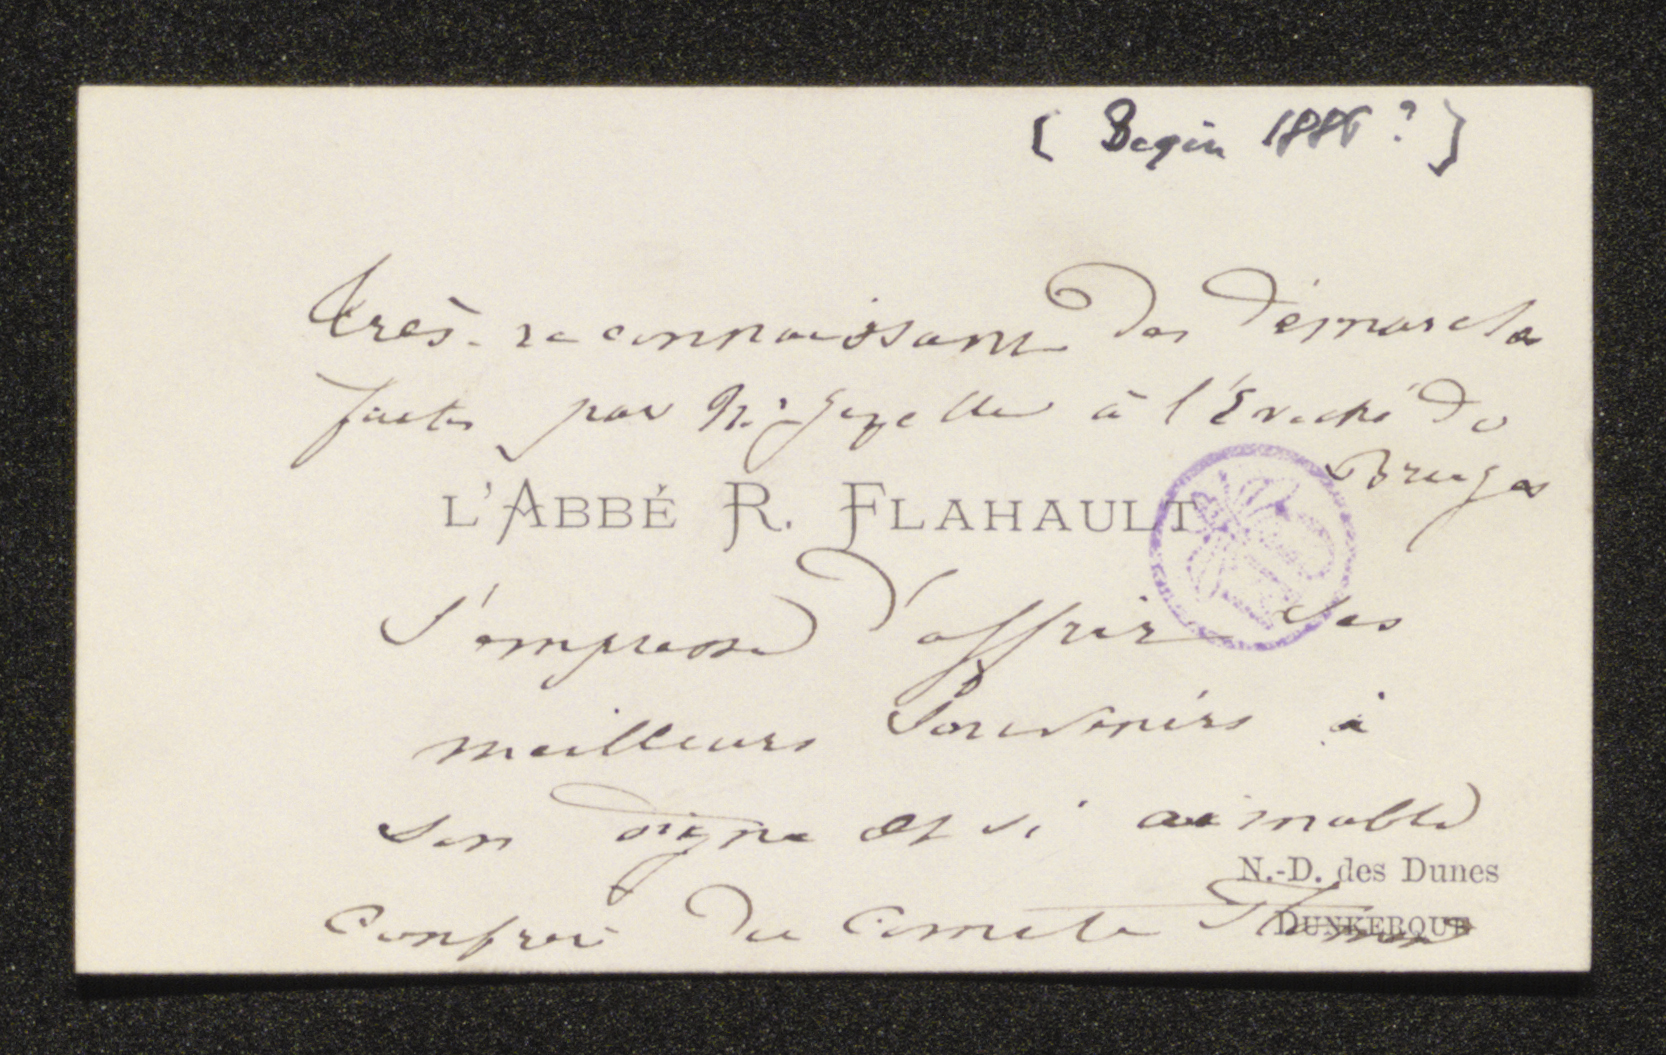 [Begin 1886?]
très-reconnaissant des démarches
faites par Mr Gezelle à l'Évêché de
Bruges
L'ABBÉ R. FLAHAULT
s'empresse d'offrir ses
meilleurs souvenirs à
son digne et si aimable
N.-D. des Dunes
confrère du Comité Flamand
DUNKERQUE